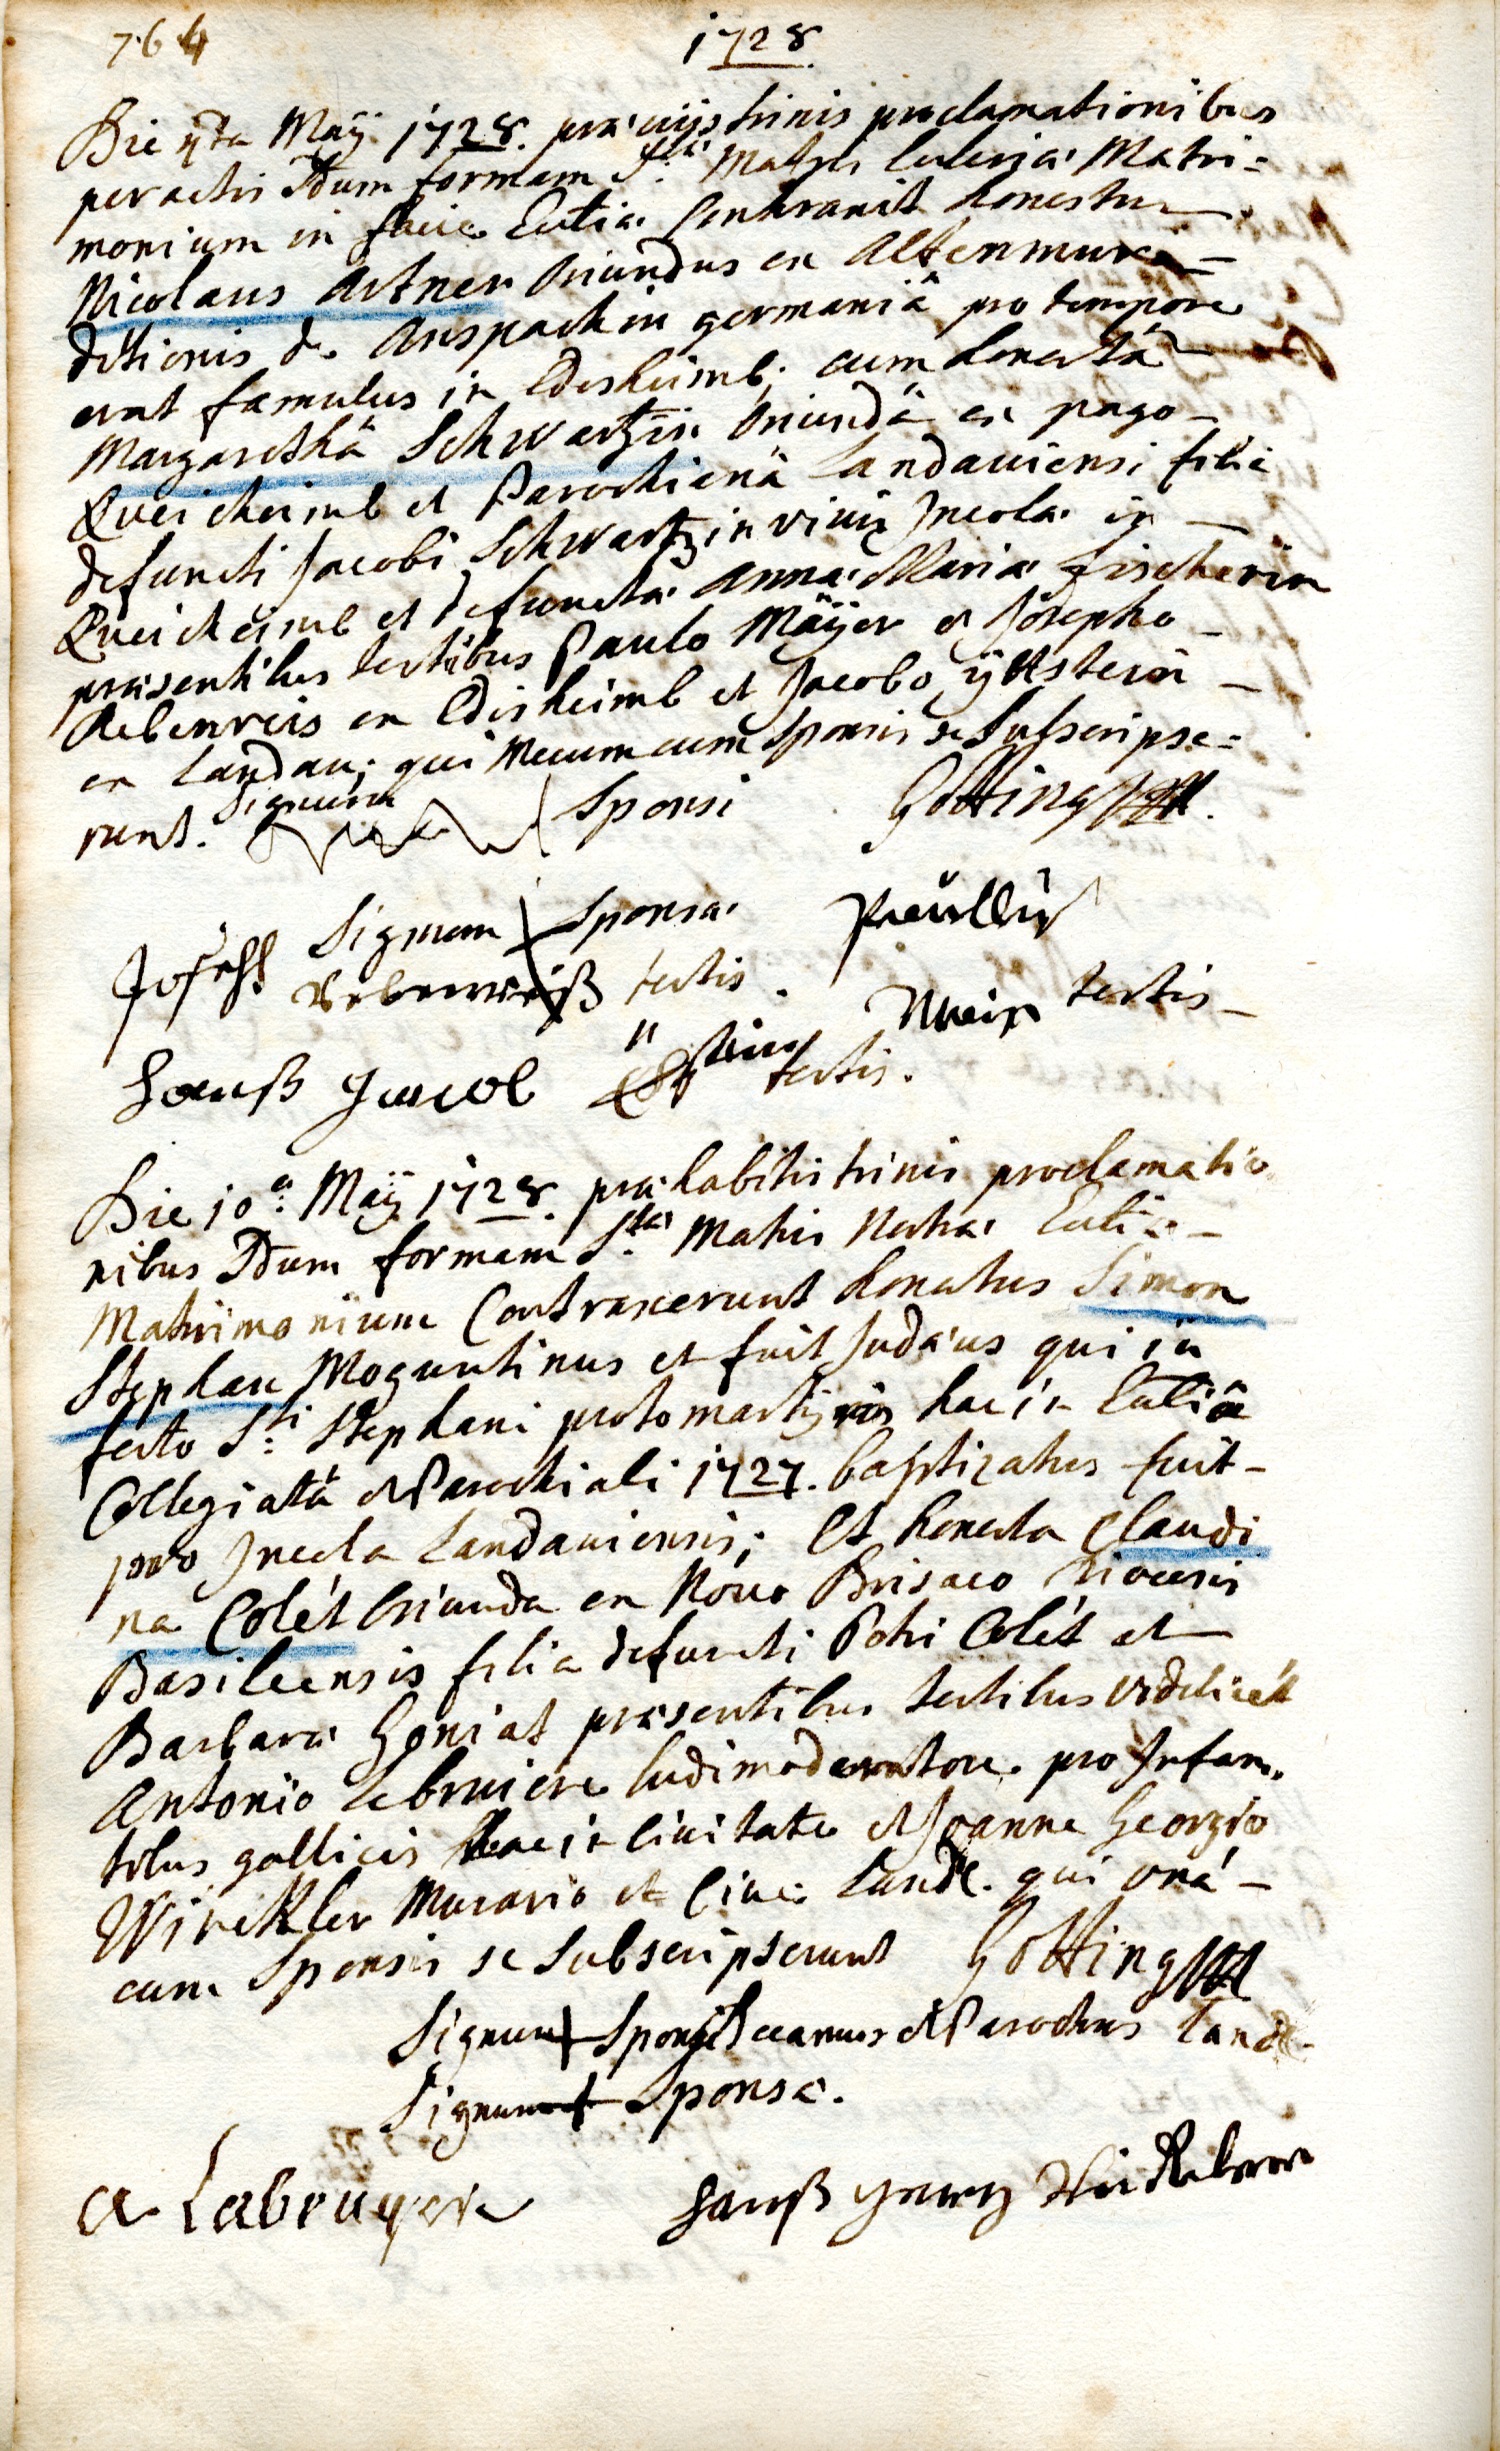 764
1728
Die 4ta Maÿ 1728. præviis trinis proclamationibus
peractis 2dum formam Stæ Matris Ecclesiæ Matri=
monium in facie Ecclīæ Contraxit honestus
Nicolaus Artner oriundus ex Altenmur
ditionis de Anspach in germaniâ pro tempore
erat famulus in Edesheimb; cum honestâ
Margarethâ Schwartzin oriundâ ex pago
Queicheimb et Parochianâ Landaviensi filiâ
defuncti Jacobi Schwartz in vivis Incolæ in
Queicheimb et defunctæ Annæ Mariæ Fischerin
præsentibus testibus Paulo Mäÿer et Josepho
Rebenreis ex Edesheimb et Jacobo ÿttstein
ex Landau; qui mecum cum Sponsis se subscripse=
runt. Signum Sponsi Götting
Signum Sponsæ Paullus
Joseph Rebenreiß testis. Meir testis
Hanß Jacob stein testis.
Die 10a: Maÿ 1728. præhabitis trinis proclamatio
nibus 2dum formam Stæ Matris Nostræ Ecclīæ
Matrimonium Contraxerunt honestus Simon
Stephan Moguntinus et fuit Judæus qui in
festo Sti: Stephani protomartyris hac in Ecclīâ
Collegiatâ et Parochiali 1727. baptizatus fuit
pro Incola Landaviensis; Et honesta Claudi
na Colét oriunda ex Novo Brisaco Diocesis
Basileensis filia defuncti Petri Colét et
Barbaræ Goniat præsentibus testibus videlicét
Antonio Lebruiere ludimoderatore pro Infan=
tibus gallicis hac in Civitate et Joanne Georgio
Winckler Murario et Cive Land. qui unâ
cum Sponsis se subscripserunt Götting
Signum Sponsi Decanus et Parochus Land
Signum Sponsæ.
a Labruyere Hanß Georg